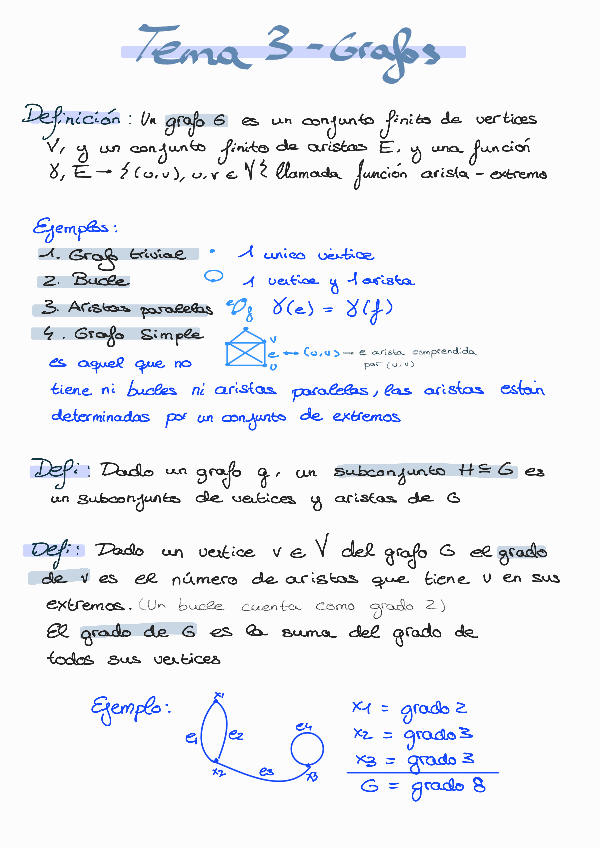 Tema 3 - Grafos
Definición: Un grafo G es un conjunto finito de vertices
V, y un conjunto finito de aristas E, y una función
γ, E → {(u,v), u,v ∈ V} llamada función arista-extremo
Ejemplos:
1. Grafo trivial 1 unico vertice
2. Bucle 1 vertice y 1 arista
3. Aristas paralelas e f γ(e) = γ(f)
4. Grafo Simple
v
e ↔ (u,v) → e arista comprendida
u por (u,v)
es aquel que no
tiene ni bucles ni aristas paralelas, las aristas están
determinadas por un conjunto de extremos
Defi: Dado un grafo g, un subconjunto H ⊆ G es
un subconjunto de vertices y aristas de G
Defi: Dado un vertice v ∈ V del grafo G el grado
de v es el número de aristas que tiene v en sus
extremos. (Un bucle cuenta como grado 2)
El grado de G es la suma del grado de
todos sus vertices
Ejemplo:
x1
e1 e2 e4
x2 e3 x3
x1 = grado 2
x2 = grado 3
x3 = grado 3
G = grado 8